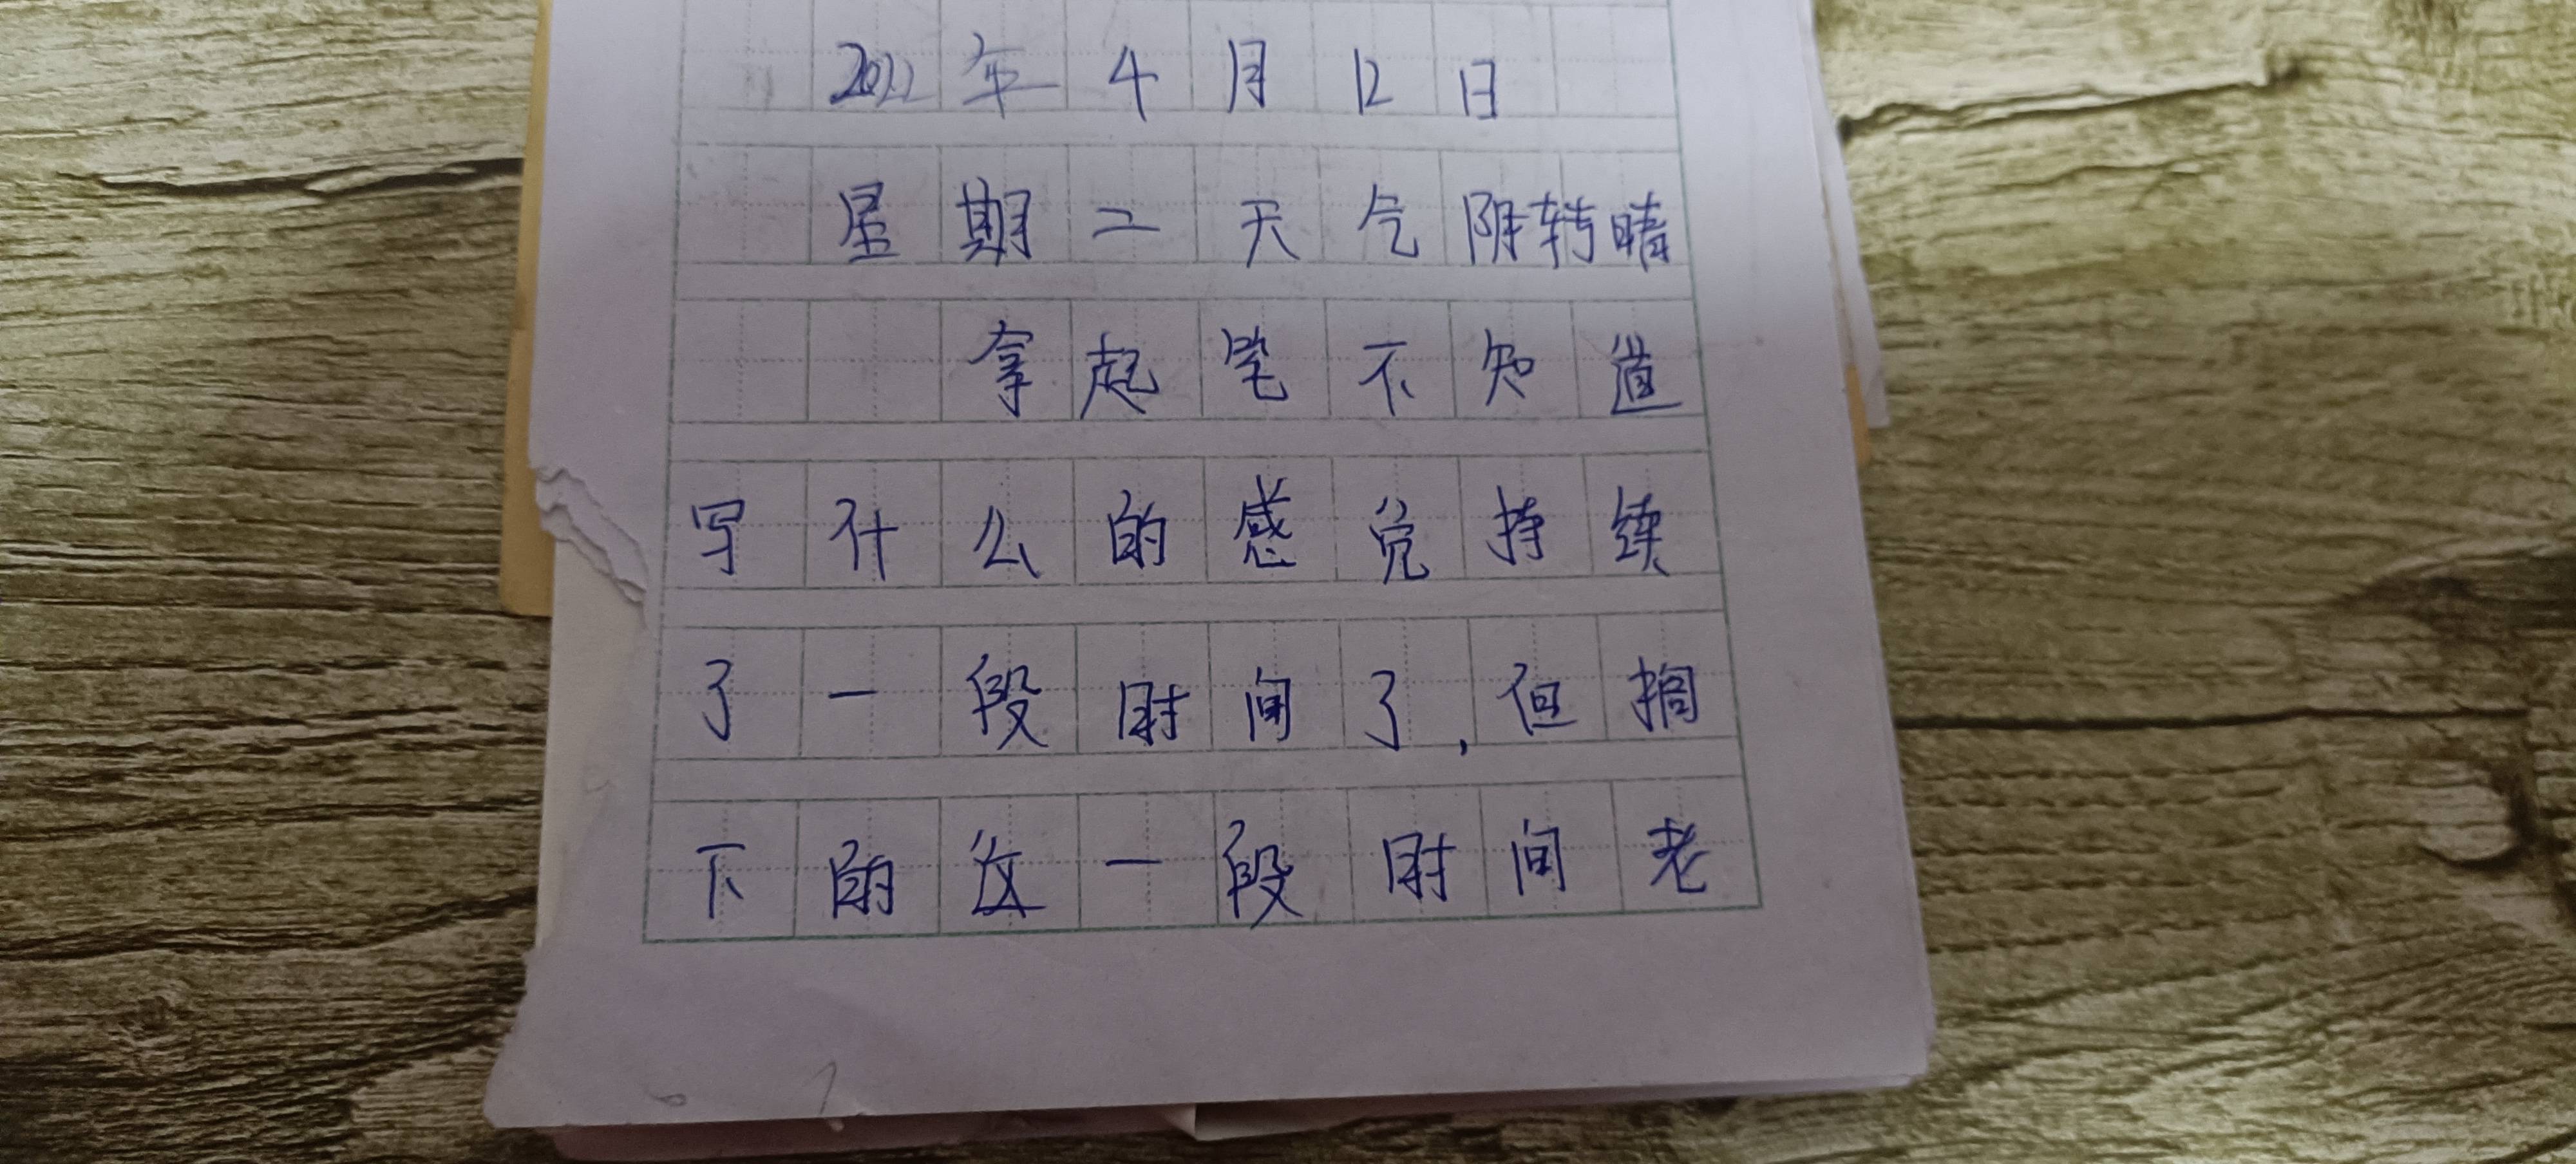 2022年4月12日
星期二天气阴转晴
拿起笔不知道
写什么的感觉持续
了一段时间了,但搁
下的这一段时间老